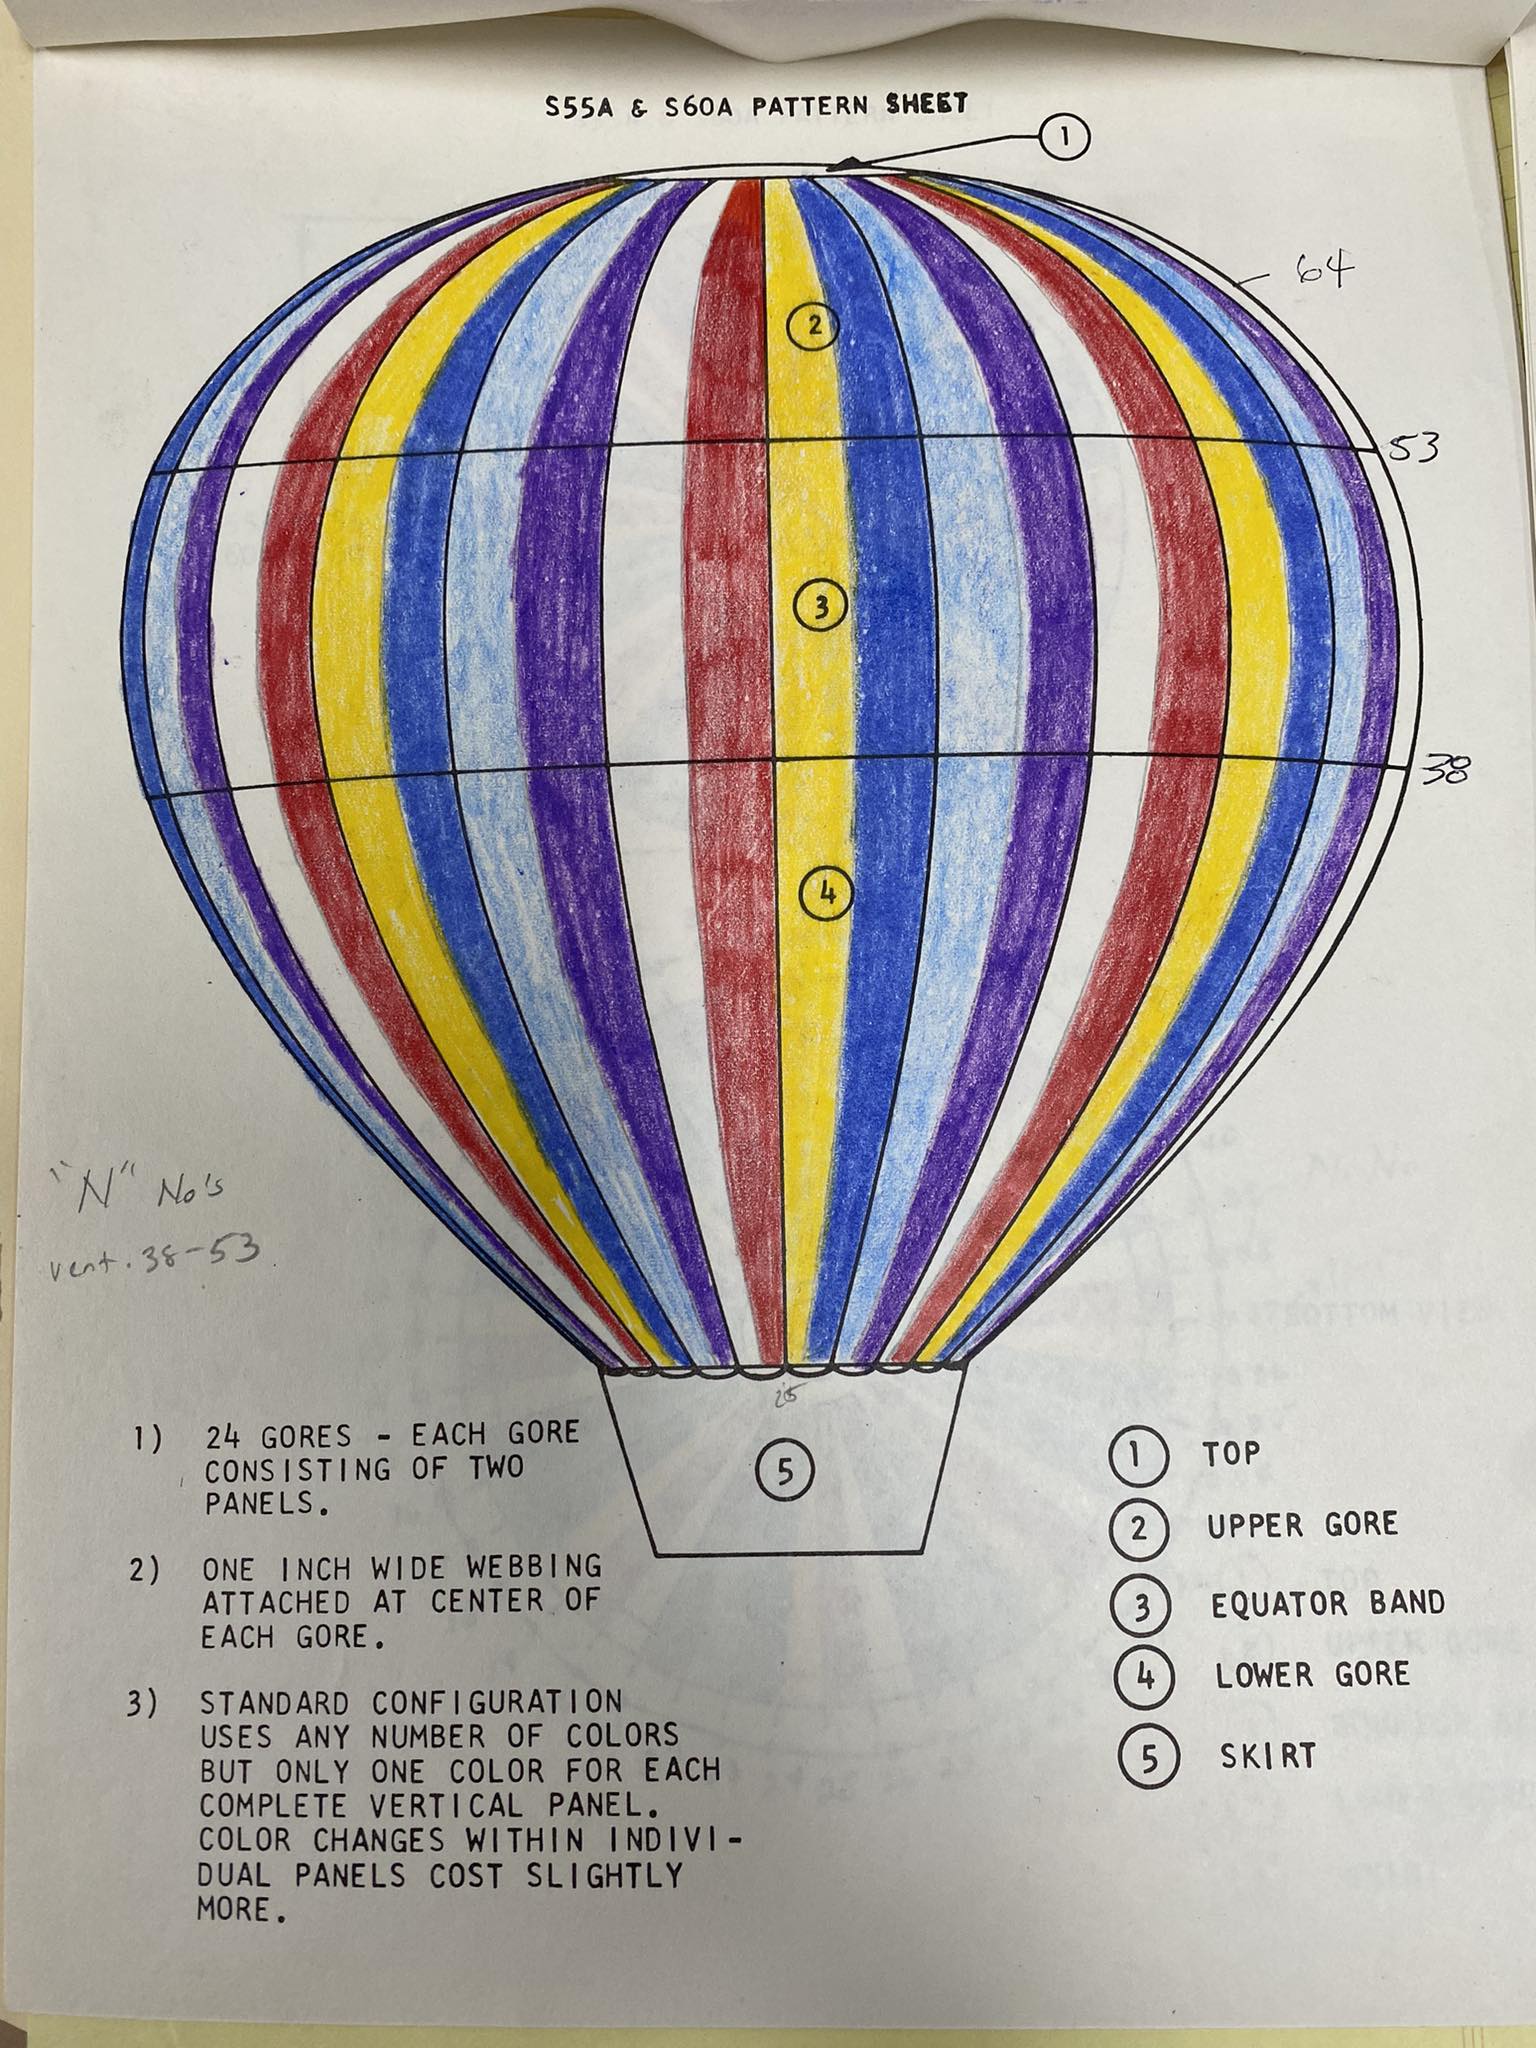 S55A & S60A PATTERN SHEET
1
64
2
53
3
38
4
"N" No's
vent. 38-53
5
1) 24 GORES - EACH GORE
CONSISTING OF TWO
PANELS.
2) ONE INCH WIDE WEBBING
ATTACHED AT CENTER OF
EACH GORE.
3) STANDARD CONFIGURATION
USES ANY NUMBER OF COLORS
BUT ONLY ONE COLOR FOR EACH
COMPLETE VERTICAL PANEL.
COLOR CHANGES WITHIN INDIVI-
DUAL PANELS COST SLIGHTLY
MORE.
1 TOP
2 UPPER GORE
3 EQUATOR BAND
4 LOWER GORE
5 SKIRT